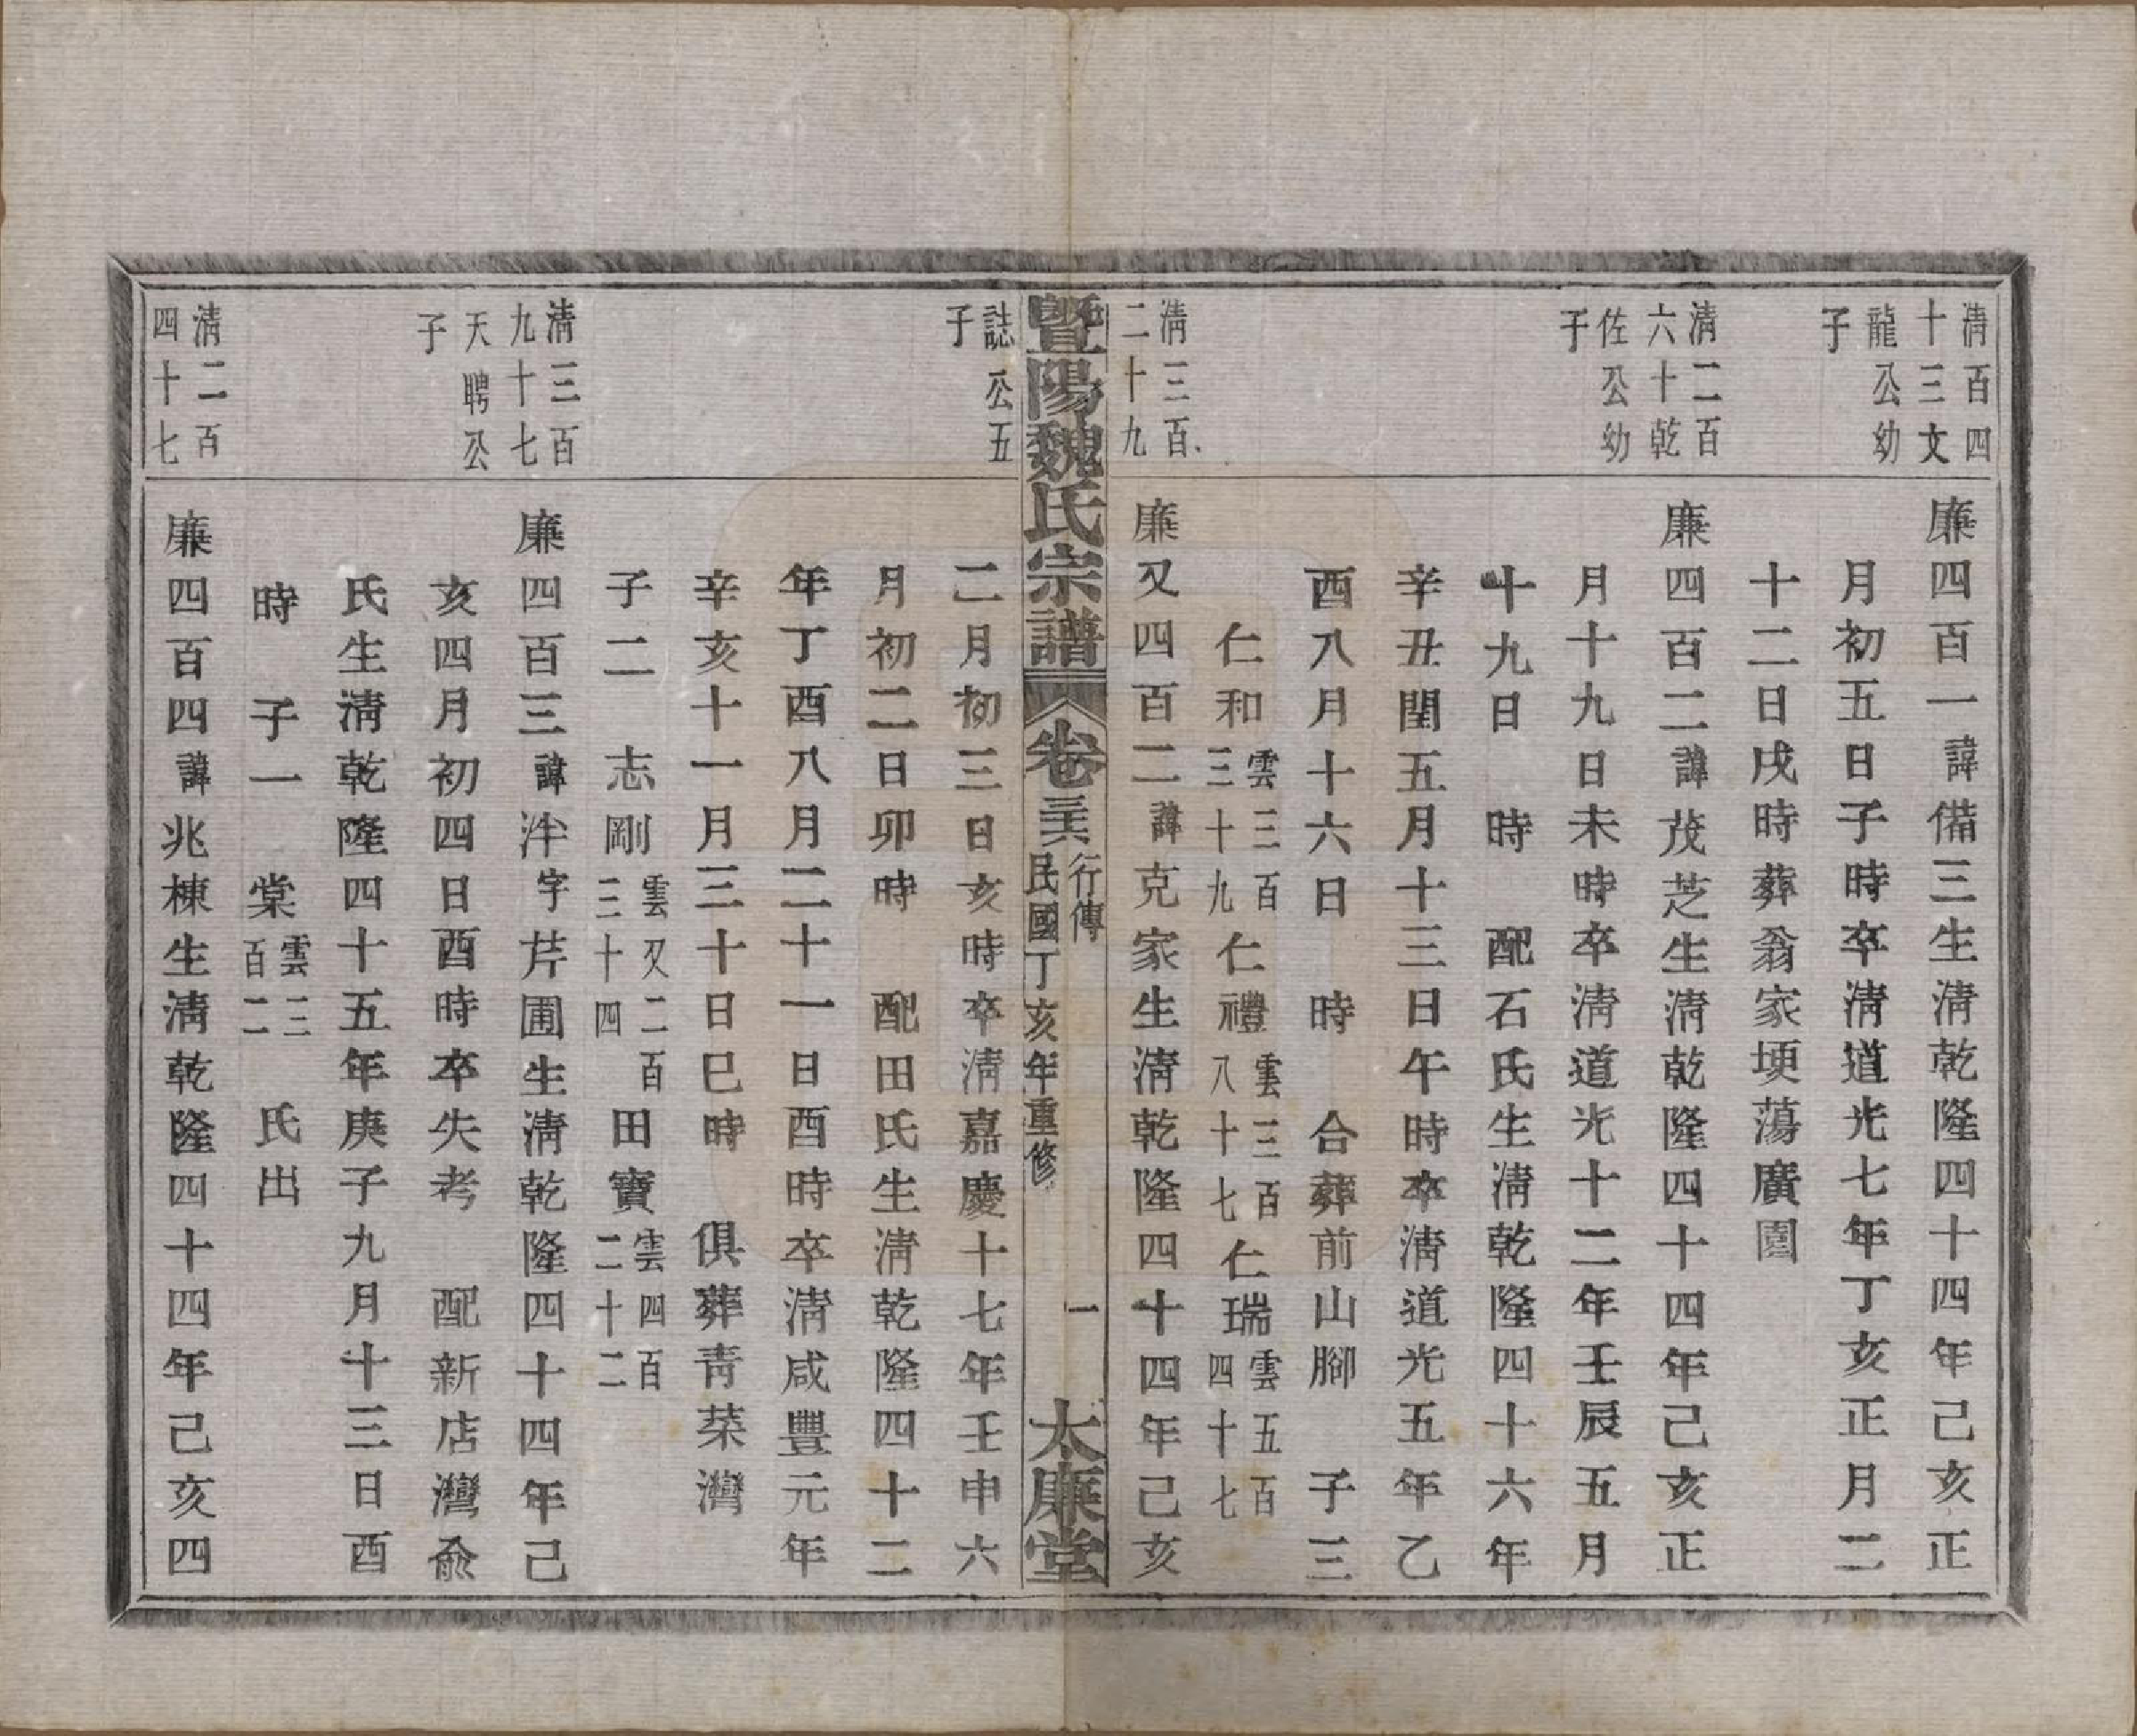 清百四
十三文
龍公幼
子
廉四百一諱備三生清乾隆四十四年己亥正
月初五日子時卒清道光七年丁亥正月二
十二日戌時葬翁家埂蕩廣園
清二百
六十乾
佐公幼
子
廉四百二諱茂芝生清乾隆四十四年己亥正
月十九日未時卒清道光十二年壬辰五月
十九日 時 配石氏生清乾隆四十六年
辛丑閏五月十三日午時卒清道光五年乙
酉八月十六日 時 合葬前山腳 子三
仁和雲三百三十九仁禮雲三百八十七仁瑞雲五百四十七
清三百
二十九
廉又四百二諱克家生清乾隆四十四年己亥
暨陽魏氏宗譜 卷三六 行傳 民國丁亥年重修 一 太廉堂
誌公五
子
二月初三日亥時卒清嘉慶十七年壬申六
月初二日卯時 配田氏生清乾隆四十二
年丁酉八月二十一日酉時卒清咸豐元年
辛亥十一月三十日巳時 俱葬青菜灣
子二 志剛雲又二百三十四 田寶雲四百二十二
清三百
九十七
天聘公
子
廉四百三諱泮字芹圃生清乾隆四十四年己
亥四月初四日酉時卒失考 配新店灣俞
氏生清乾隆四十五年庚子九月十三日酉
時 子一 棠雲三百二 氏出
清二百
四十七
廉四百四諱兆棟生清乾隆四十四年己亥四